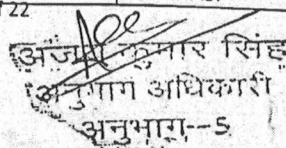 22
अजय कुमार सिंह
अनुभाग अधिकारी
अनुभाग--5